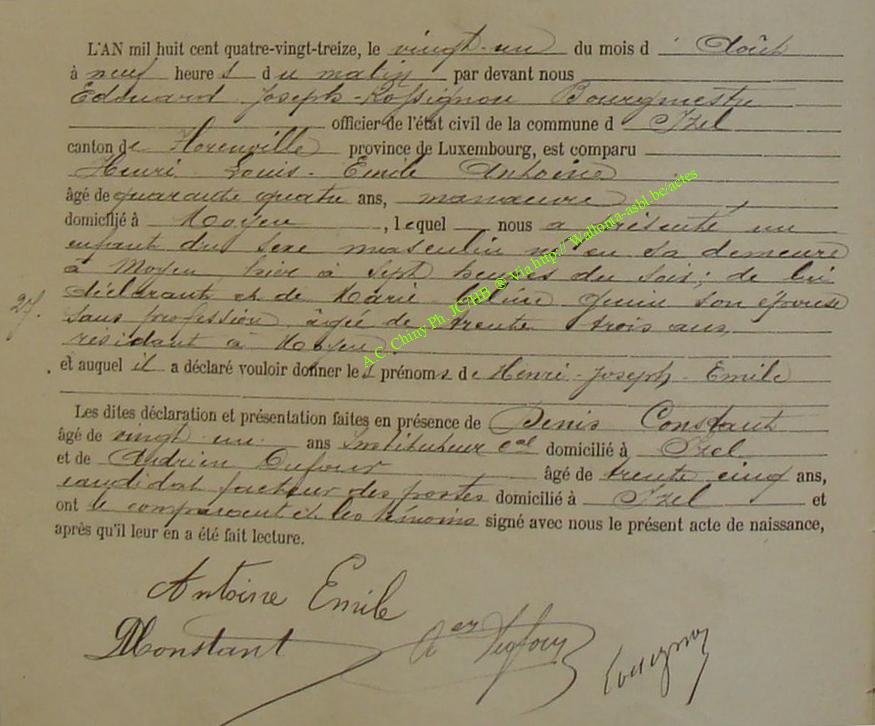 L'AN mil huit cent quatre-vingt-treize, le vingt-un du mois d' Août
à neuf heures du matin par devant nous
Edouard Joseph Rossignon Bourgmestre
officier de l'état civil de la commune d' Izel
canton de Florenville province de Luxembourg, est comparu
Henri Louis-Emile Antoine
âgé de quarante quatre ans, manœuvre
domicilié à Moyen, lequel nous a présenté un
enfant du sexe masculin né en sa demeure
à Moyen hier à sept heures du soir; de lui
déclarant et de Marie son épouse
27.
sans profession âgée de trente trois ans,
résidant à Moyen
et auquel il a déclaré vouloir donner les prénoms de Henri-Joseph-Emile
Les dites déclaration et présentation faites en présence de Denis Constant
âgé de vingt un ans Instituteur cal domicilié à Izel
et de Adrien Dufour âgé de trente cinq ans,
candidat facteur des postes domicilié à Izel et
ont le comparant et les témoins signé avec nous le présent acte de naissance,
après qu'il leur en a été fait lecture.
A.C. Chiny Ph JC HB @ Via http:// Wallonia-asbl.be/actes
Antoine Emile
DConstant Aen Dufour Rossignon